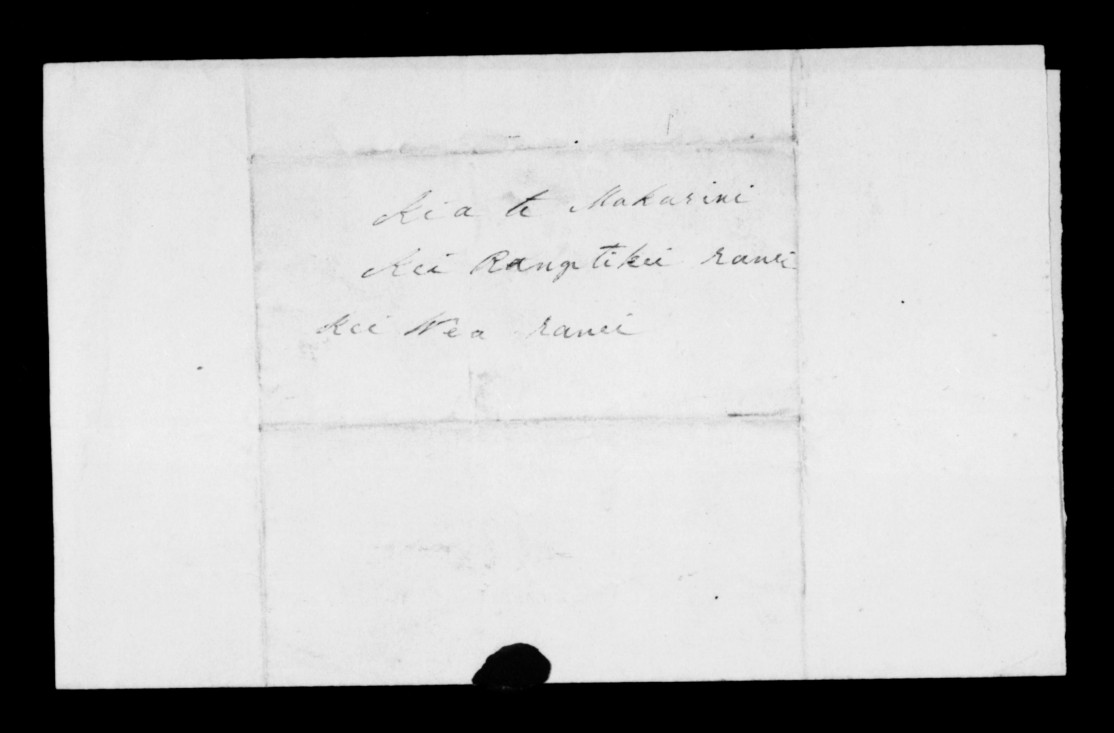 Kia te Makarini
Kei Rangitikei ranei
Kei Nea ranei